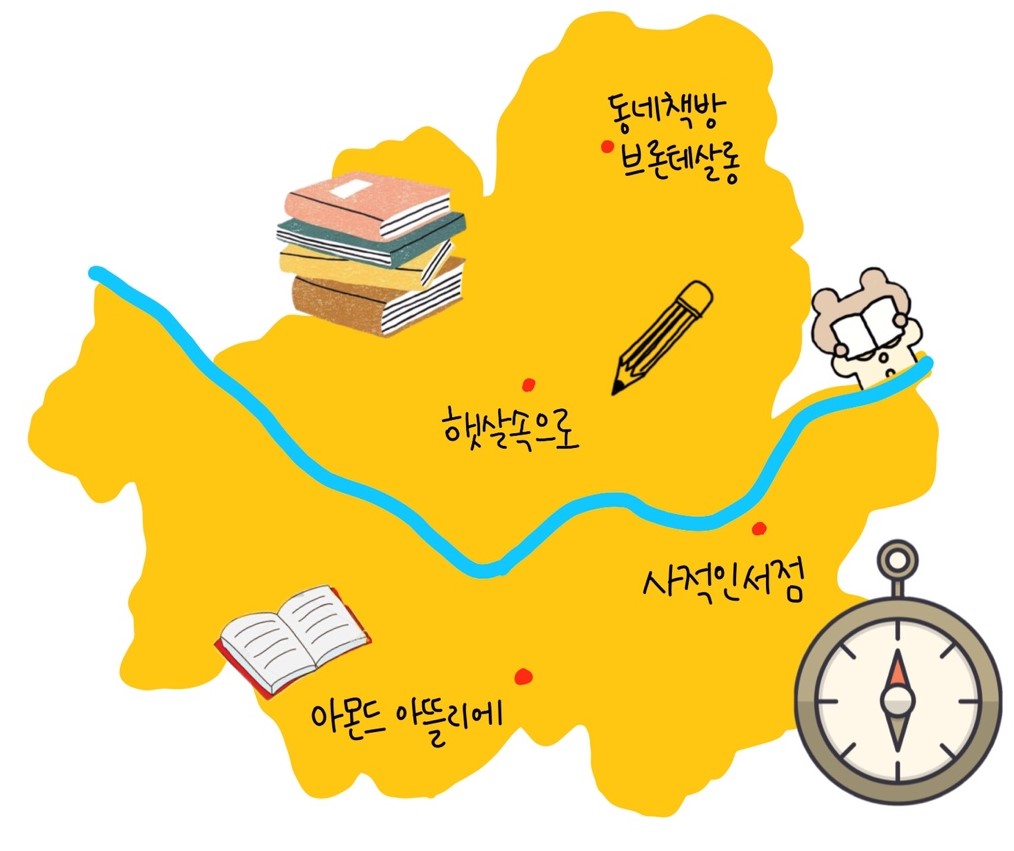 동네책방
브론테살롱
햇살속으로
사적인서점
아몬드 아뜰리에